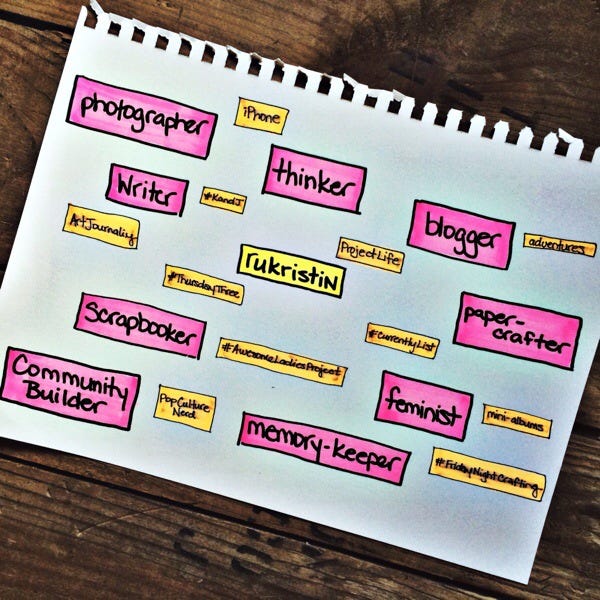 photographer
iPhone
thinker
Writer
#KandJ
blogger
adventures
ArtJournaliy
ProjectLife
rukristin
#ThursdayThree
Scrapbooker
paper-
crafter
#CurrentlyList
#AwesomeLadiesProject
Community
Builder
PopCulture
Nerd
feminist
mini-albums
memory-keeper
#FridayNightCrafting